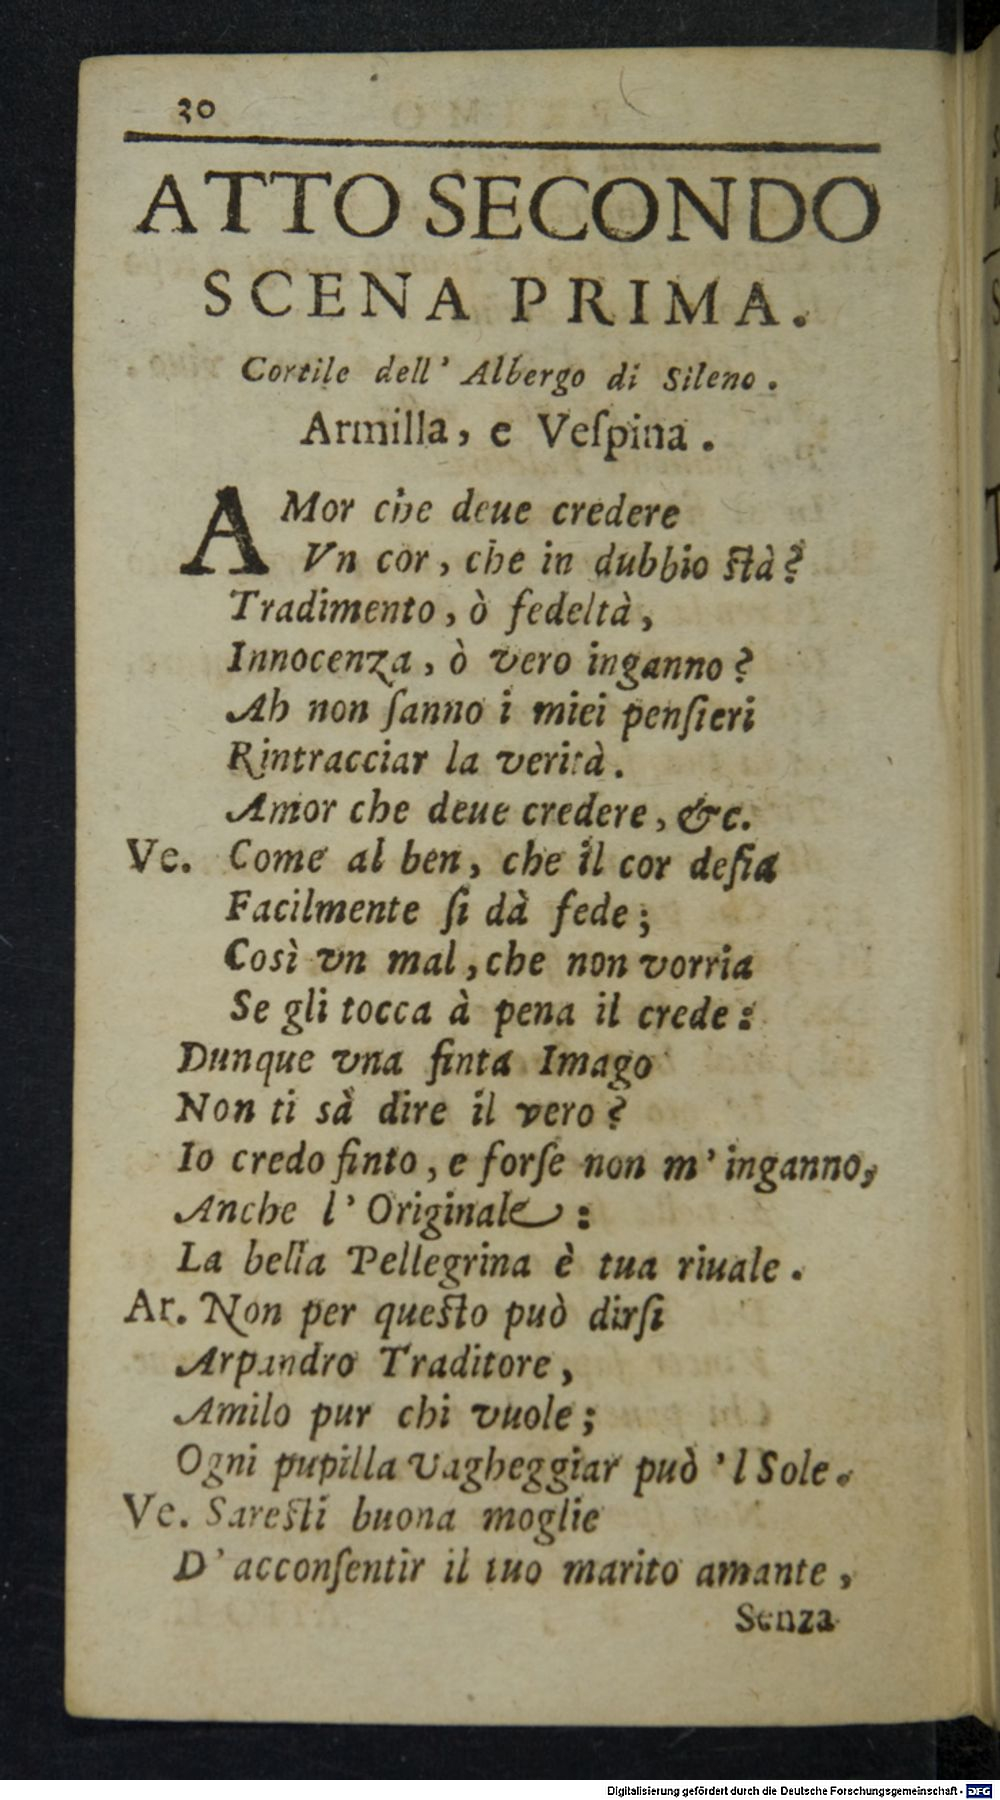 30
ATTO SECONDO
SCENA PRIMA.
Cortile dell' Albergo di Sileno.
Armilla, e Veſpina.
AMor che deue credere
Vn cor, che in dubbio ſtà?
Tradimento, ò fedeltà,
Innocenza, ò vero inganno?
Ah non ſanno i miei penſieri
Rintracciar la verità.
Amor che deue credere, &c.
Ve. Come al ben, che il cor deſia
Facilmente ſi dà fede;
Così vn mal, che non vorria
Se gli tocca à pena il crede:
Dunque vna finta Imago
Non ti sà dire il vero?
Io credo finto, e forſe non m' inganno,
Anche l' Originale:
La bella Pellegrina è tua riuale.
Ar. Non per queſto può dirſi
Arpandro Traditore,
Amilo pur chi vuole;
Ogni pupilla vagheggiar può 'l Sole.
Ve. Sareſti buona moglie
D' acconſentir il tuo marito amante,
Senza
Digitalisierung gefördert durch die Deutsche Forschungsgemeinschaft - DFG